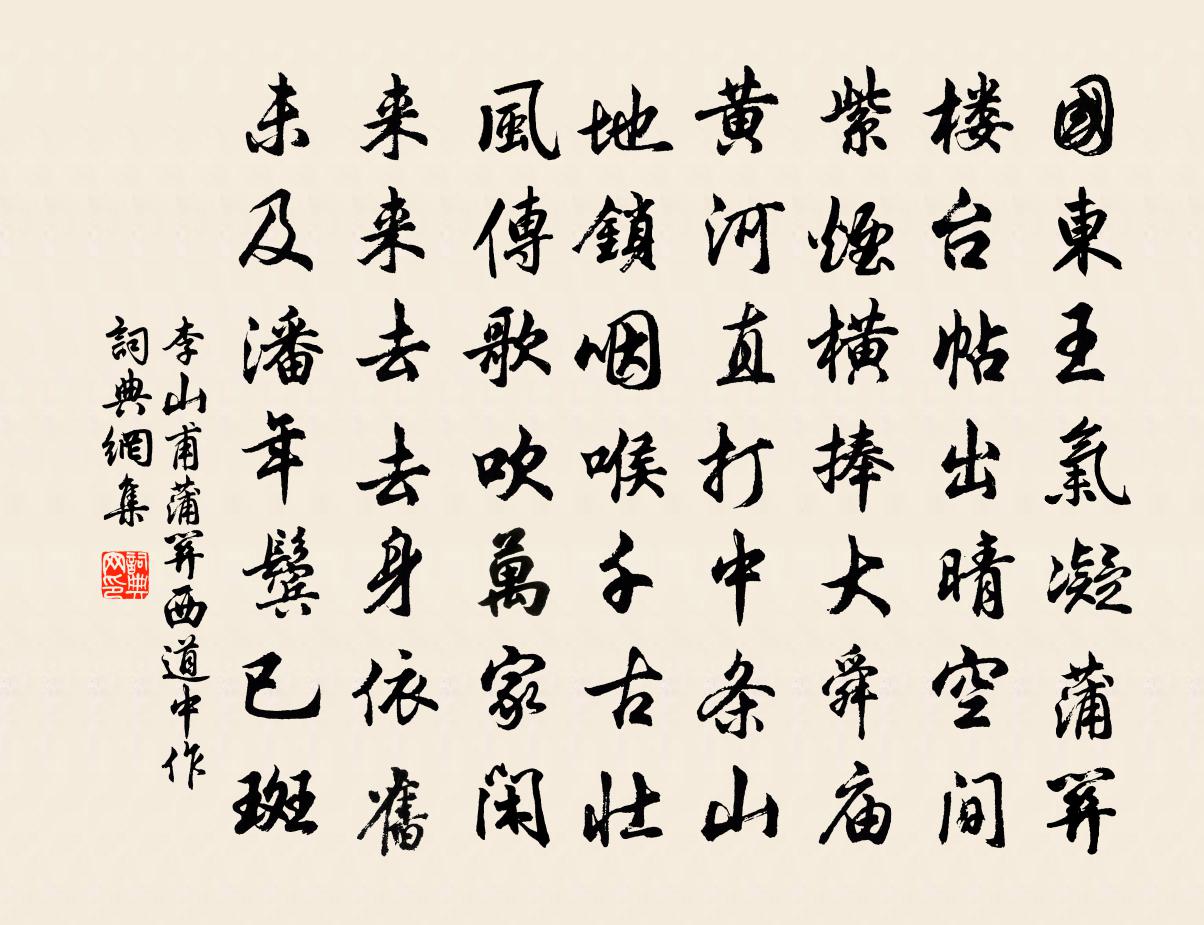 國東王氣凝蒲關
楼台帖出晴空間
紫煙橫捧大舜庙
黄河直打中条山
地鎖咽喉千古壯
風傳歌吹萬家閑
来来去去身依舊
未及潘年鬢已斑
李山甫蒲關西道中作
詞典網集
詞典网印